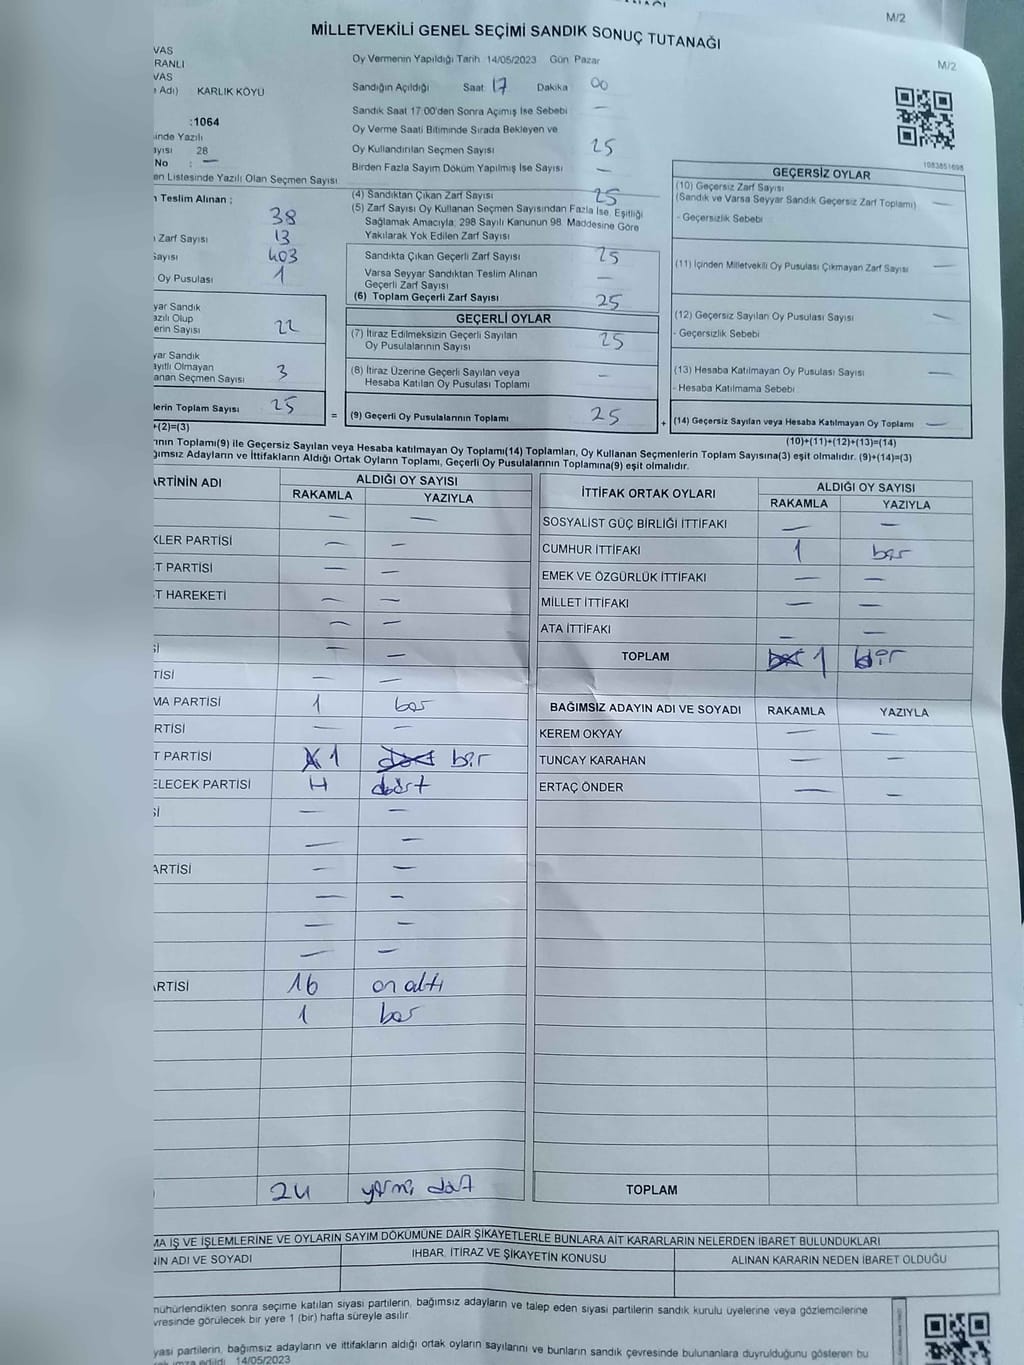 M/2
MİLLETVEKİLİ GENEL SEÇİMİ SANDIK SONUÇ TUTANAĞI
M/2
VAS
RANLI
VAS
Adı) KARLIK KÖYÜ
:1064
inde Yazılı
ayısı 28
No : —
en Listesinde Yazılı Olan Seçmen Sayısı
Oy Vermenin Yapıldığı Tarih 14/05/2023 Gün Pazar
Sandığın Açıldığı Saat 17 Dakika 00
Sandık Saat 17:00'den Sonra Açımış İse Sebebi —
Oy Verme Saati Bitiminde Sırada Bekleyen ve
Oy Kullandırılan Seçmen Sayısı 25
Birden Fazla Sayım Döküm Yapılmış İse Sayısı —
1083851698
n Teslim Alınan ;
38
Zarf Sayısı 13
Sayısı 403
Oy Pusulası 1
yar Sandık
azılı Olup
erin Sayısı 22
yar Sandık
ayıtlı Olmayan
anan Seçmen Sayısı 3
lerin Toplam Sayısı 25
+(2)=(3)
(4) Sandıktan Çıkan Zarf Sayısı 25
(5) Zarf Sayısı Oy Kullanan Seçmen Sayısından Fazla İse, Eşitliği
Sağlamak Amacıyla, 298 Sayılı Kanunun 98. Maddesine Göre
Yakılarak Yok Edilen Zarf Sayısı
Sandıkta Çıkan Geçerli Zarf Sayısı 25
Varsa Seyyar Sandıktan Teslim Alınan
Geçerli Zarf Sayısı —
(6) Toplam Geçerli Zarf Sayısı 25
GEÇERLİ OYLAR
(7) İtiraz Edilmeksizin Geçerli Sayılan
Oy Pusulalarının Sayısı 25
(8) İtiraz Üzerine Geçerli Sayılan veya
Hesaba Katılan Oy Pusulası Toplamı —
= (9) Geçerli Oy Pusulalarının Toplamı 25
GEÇERSİZ OYLAR
(10) Geçersiz Zarf Sayısı
(Sandık ve Varsa Seyyar Sandık Geçersiz Zarf Toplamı) —
- Geçersizlik Sebebi
(11) İçinden Milletvekili Oy Pusulası Çıkmayan Zarf Sayısı —
(12) Geçersiz Sayılan Oy Pusulası Sayısı —
- Geçersizlik Sebebi
(13) Hesaba Katılmayan Oy Pusulası Sayısı —
- Hesaba Katılmama Sebebi
+ (14) Geçersiz Sayılan veya Hesaba Katılmayan Oy Toplamı —
(10)+(11)+(12)+(13)=(14)
nnın Toplamı(9) ile Geçersiz Sayılan veya Hesaba katılmayan Oy Toplamı(14) Toplamları, Oy Kullanan Seçmenlerin Toplam Sayısına(3) eşit olmalıdır. (9)+(14)=(3)
ğımsız Adayların ve İttifakların Aldığı Ortak Oyların Toplamı, Geçerli Oy Pusulalarının Toplamına(9) eşit olmalıdır.
ARTİNİN ADI ALDIĞI OY SAYISI
RAKAMLA YAZIYLA
— —
KLER PARTİSİ — —
T PARTİSİ — —
T HAREKETİ — —
— —
Sİ — —
TİSİ — —
MA PARTİSİ 1 bir
RTİSİ — —
T PARTİSİ 1 bir
ELECEK PARTİSİ 4 dört
Sİ — —
— —
ARTİSİ — —
— —
— —
— —
ARTİSİ 16 on altı
1 bir
24 yirmi dört
İTTİFAK ORTAK OYLARI ALDIĞI OY SAYISI
RAKAMLA YAZIYLA
SOSYALİST GÜÇ BİRLİĞİ İTTİFAKI — —
CUMHUR İTTİFAKI 1 bir
EMEK VE ÖZGÜRLÜK İTTİFAKI — —
MİLLET İTTİFAKI — —
ATA İTTİFAKI — —
TOPLAM 1 bir
BAĞIMSIZ ADAYIN ADI VE SOYADI RAKAMLA YAZIYLA
KEREM OKYAY — —
TUNCAY KARAHAN — —
ERTAÇ ÖNDER — —
TOPLAM
MA İŞ VE İŞLEMLERİNE VE OYLARIN SAYIM DÖKÜMÜNE DAİR ŞİKAYETLERLE BUNLARA AİT KARARLARIN NELERDEN İBARET BULUNDUKLARI
NİN ADI VE SOYADI İHBAR, İTİRAZ VE ŞİKAYETİN KONUSU ALINAN KARARIN NEDEN İBARET OLDUĞU
mühürlendikten sonra seçime katılan siyasi partilerin, bağımsız adayların ve talep eden siyasi partilerin sandık kurulu üyelerine veya gözlemcilerine
vresinde görülecek bir yere 1 (bir) hafta süreyle asılır
yasi partilerin, bağımsız adayların ve ittifakların aldığı ortak oyların sayılarını ve bunların sandık çevresinde bulunanlara duyrulduğunu gösteren bu
imza edildi. 14/05/2023